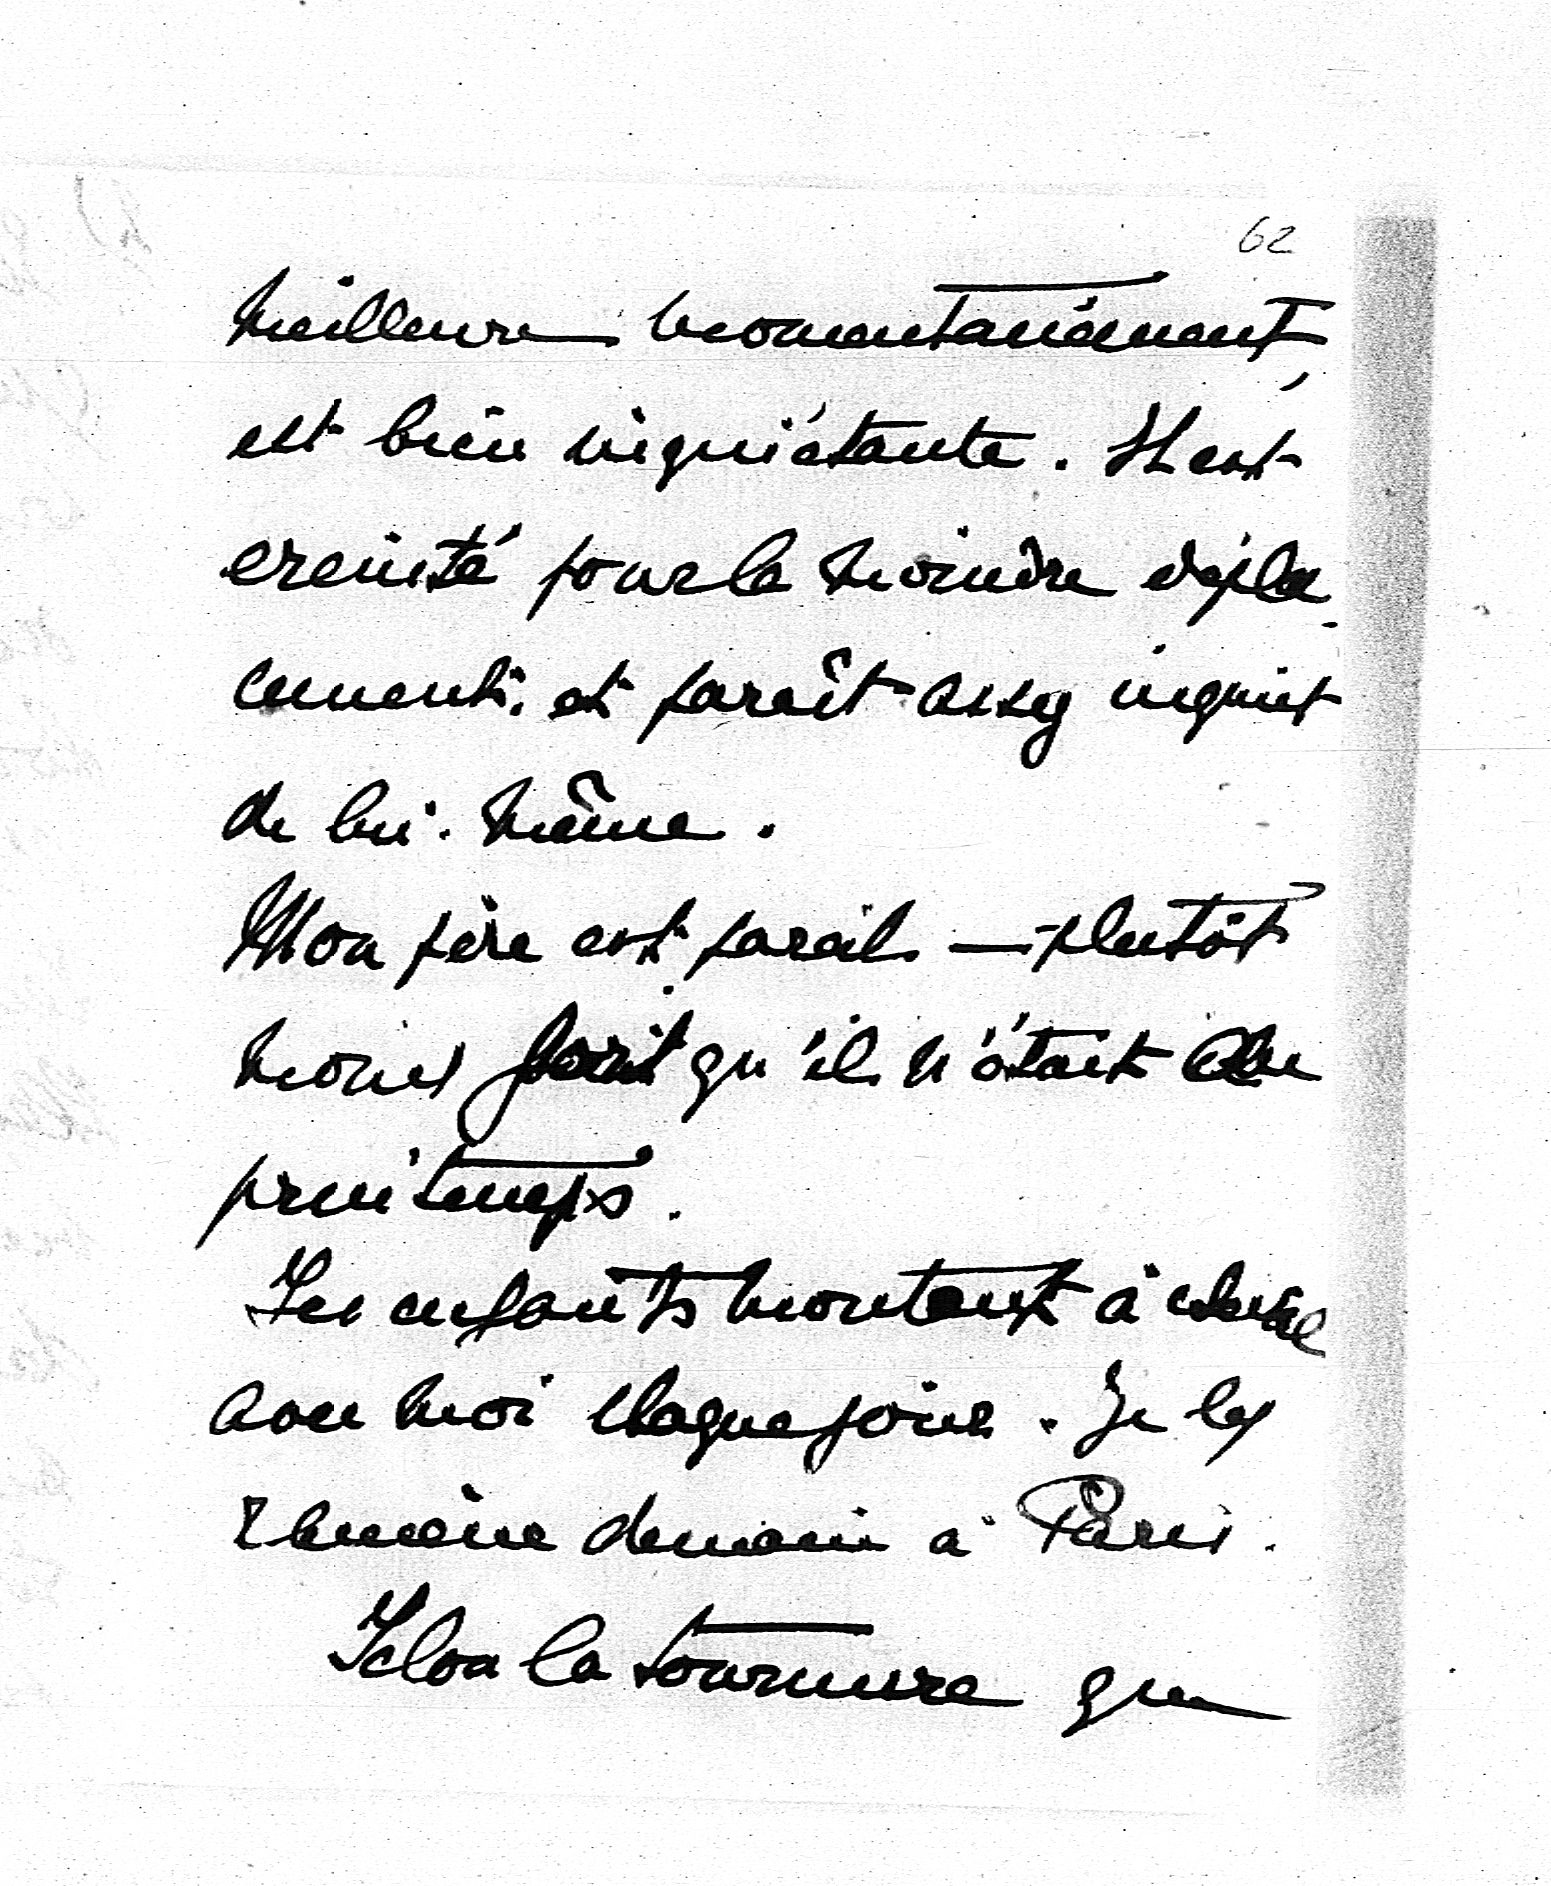 62
meilleure momentanément,
est bien inquiétante. Il est
ereinté pour le moindre dépla-
cement. et paraît assez inquiet
de lui-même.
Mon père est pareil — plutôt
moins fort qu'il n'était au
printemps.
Les enfants montent à cheval
avec moi chaque jour. Je les
ramène demain à Paris.
Selon la tournure que